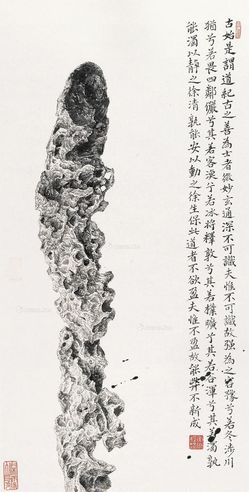 古始是謂道紀古之善為士者微妙玄通深不可識夫惟不可識故强為之容豫兮若冬涉川
猶兮若畏四鄰儼兮其若客渙兮若冰将釋敦兮其若樸曠兮其若谷渾兮其若濁孰
能濁以靜之徐清孰能安以動之徐生保此道者不欲盈夫惟不盈故能弊不新成